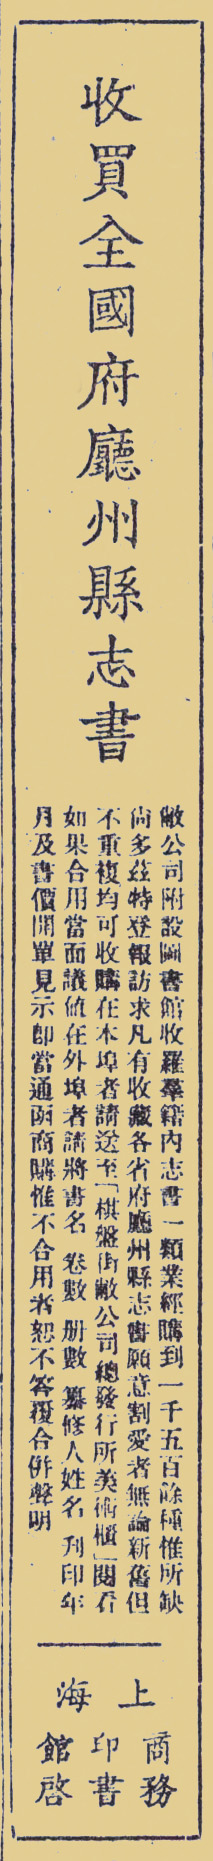 收買全國府廳州縣志書
敝公司附設圖書館收羅羣籍內志書一類業經購到一千五百餘種惟所缺
尙多茲特登報訪求凡有收藏各省府廳州縣志書願意割愛者無論新舊但
不重複均可收購在本埠者請送至「棋盤街敝公司總發行所美術櫃」閱看
如果合用當面議値在外埠者請將書名 卷數 册數 纂修人姓名 刋印年
月及書價開單見示卽當通函商購惟不合用者恕不答覆合併聲明
上海
商務
印書
館啓